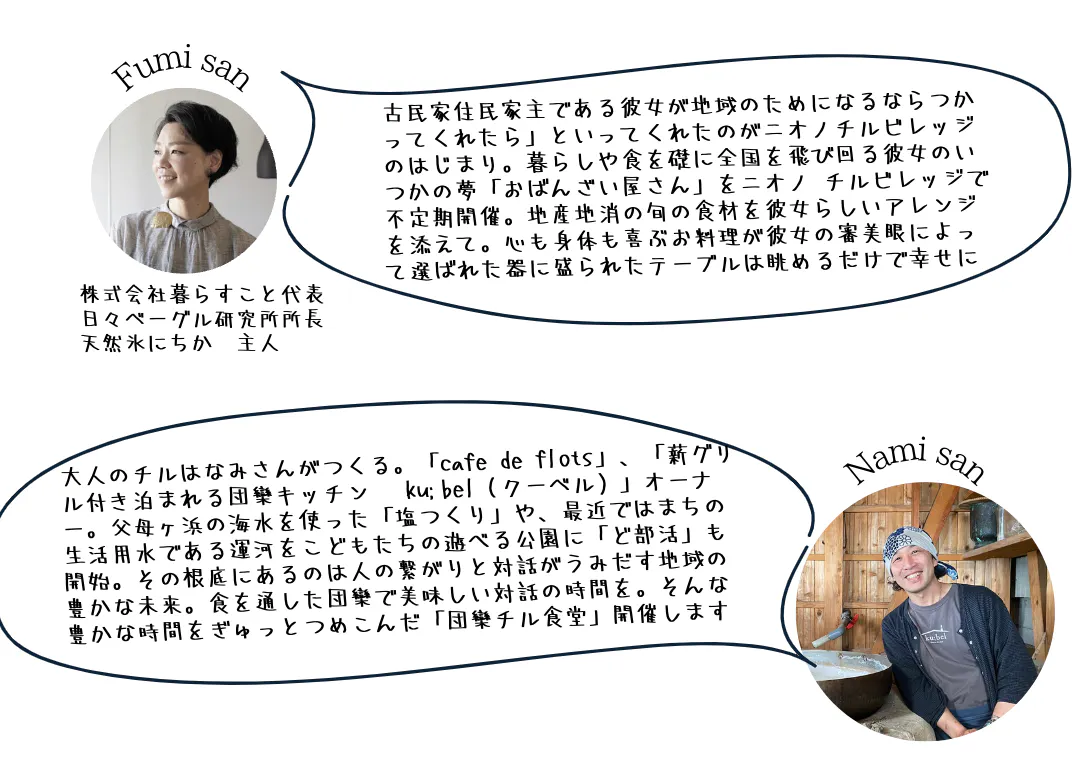 Fumi san
古民家住民家主である彼女が地域のためになるならつか
ってくれたら」といってくれたのがニオノチルビレッジ
のはじまり。暮らしや食を礎に全国を飛び回る彼女のい
つかの夢「おばんざい屋さん」をニオノ チルビレッジで
不定期開催。地産地消の旬の食材を彼女らしいアレンジ
を添えて。心も身体も喜ぶお料理が彼女の審美眼によっ
て選ばれた器に盛られたテーブルは眺めるだけで幸せに
株式会社暮らすこと代表
日々ベーグル研究所所長
天然氷にちか　主人
大人のチルはなみさんがつくる。「cafe de flots」、「薪グリ
ル付き泊まれる団欒キッチン　ku;bel（クーベル）」オーナ
ー。父母ヶ浜の海水を使った「塩つくり」や、最近ではまちの
生活用水である運河をこどもたちの遊べる公園に「ど部活」も
開始。その根底にあるのは人の繋がりと対話がうみだす地域の
豊かな未来。食を通した団欒で美味しい対話の時間を。そんな
豊かな時間をぎゅっとつめこんだ「団欒チル食堂」開催します
Nami san
ku;bel